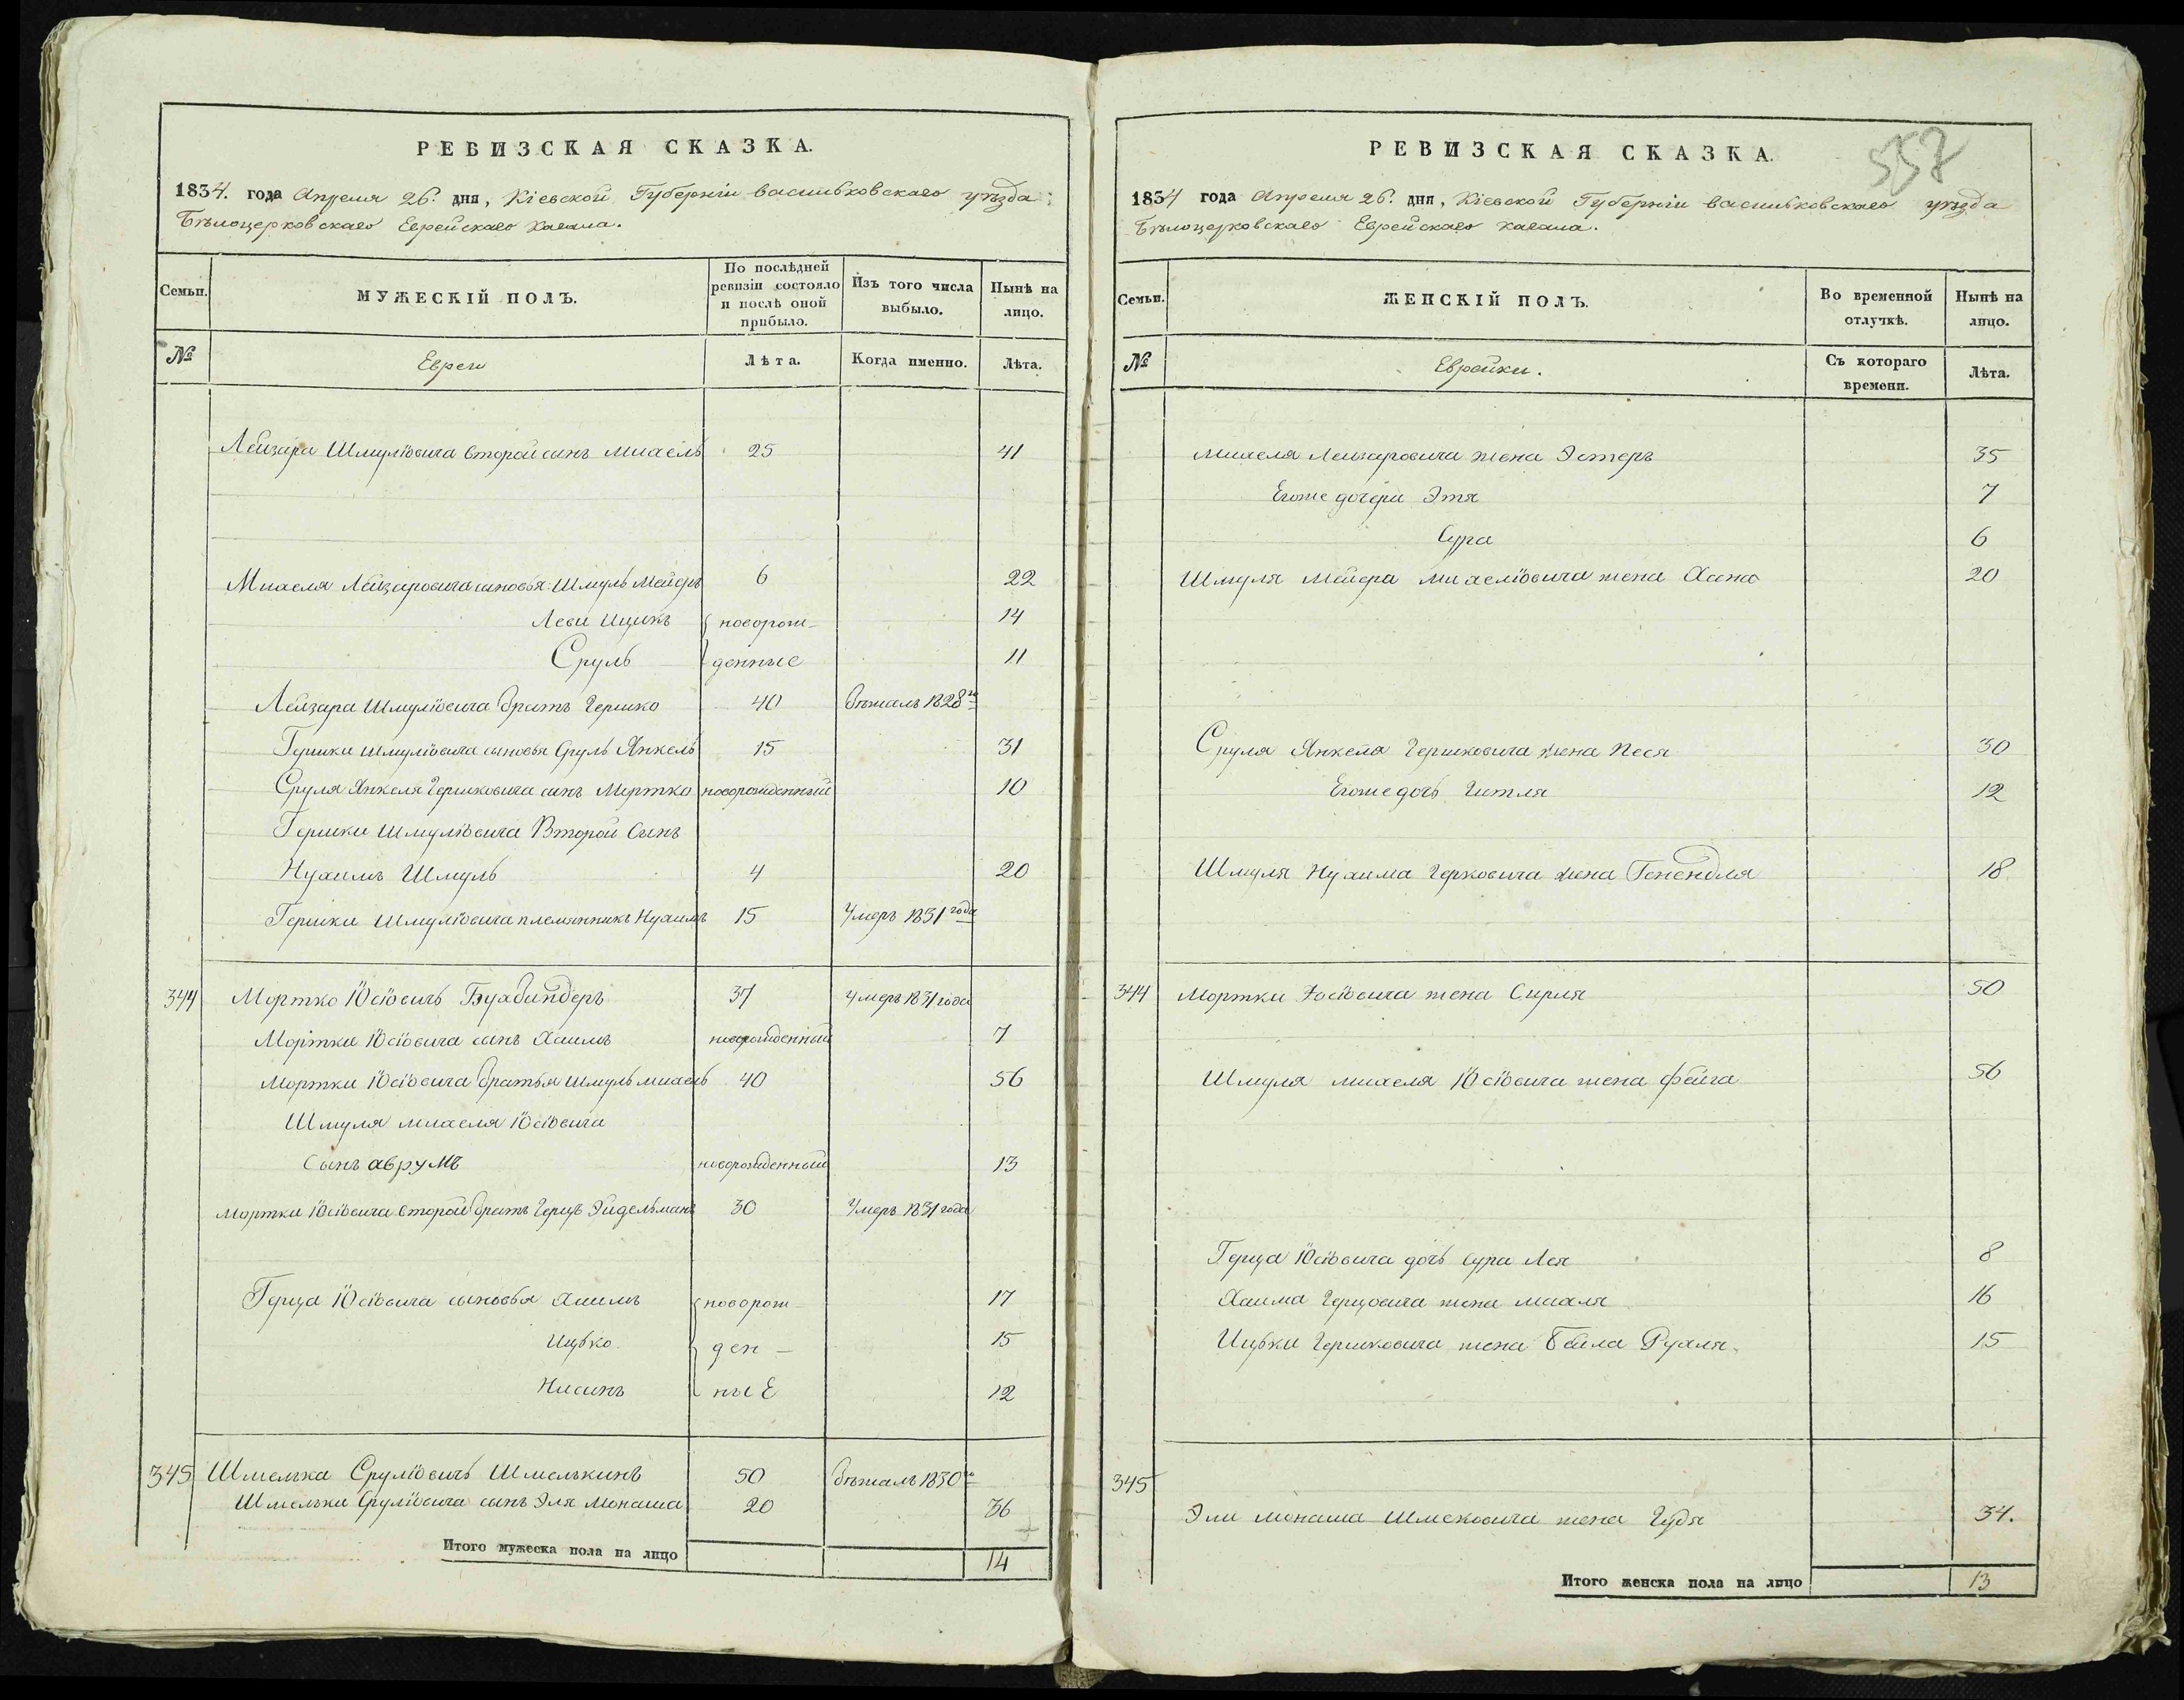 РЕВИЗСКАЯ СКАЗКА.
1834. года Апреля 26. дня, Кіевской Губерніи васильковскаго уѣзда
Бѣлоцерковскаго Еврейскаго кагала.
Семьи.
МУЖЕСКІЙ ПОЛЪ.
По послѣдней ревизіи состояло и послѣ оной прибыло.
Изъ того числа выбыло.
Нынѣ на лицо.
№
Евреи
Лѣта.
Когда именно.
Лѣта.
Лейзара Шмуліовича второй сынъ михель 25 41
Михеля Лейзаровича сыновья: Шмуль Мейеръ 6 22
Леви Ицикъ новорож- 14
Сруль денные 11
Лейзара Шмуліовича братъ Гершко 40 бѣжалъ 1828го
Гершки Шмуліовича сыновья Сруль Янкель 15 31
Сруля Янкеля Гершковича сынъ Мортко новорожденный 10
Гершки Шмуліовича Второй Сынъ
Нухимъ Шмуль 4 20
Гершки Шмуліовича племянникъ Нухимъ 15 Умеръ 1831 года
344 Мортко Юсіовичъ Бухбиндеръ 37 Умеръ 1831 года
Мортки Юсіовича сынъ Хаимъ новорожденный 7
Мортки Юсіовича братья Шмуль михель 40 56
Шмуля михеля Юсіовича
Сынъ аврумъ новорожденный 13
Мортки Юсіовича второй братъ Герцъ Эйдельманъ 30 Умеръ 1831 года
Герца Юсіовича сыновья Хаимъ новорож- 17
Ицько ден- 15
Нисинъ ныЕ 12
345 Шмелька Сруліовичъ Шмелькинъ 50 бѣжалъ 1830го
Шмельки Сруліовича сынъ Эля Монаша 20 36
Итого мужеска пола на лицо 14
РЕВИЗСКАЯ СКАЗКА.
557
1834 года Апреля 26. дня, Кіевской Губерніи васильковскаго уѣзда
Бѣлоцерковскаго Еврейскаго кагала.
Семьи.
ЖЕНСКІЙ ПОЛЪ.
Во временной отлучкѣ.
Нынѣ на лицо.
№
Еврейки.
Съ котораго времени.
Лѣта.
михеля Лейзаровича жена Эстеръ 35
Егоже дочери Этя 7
Сура 6
Шмуля Мейера михеліовича жена Хана 20
Сруля Янкеля Гершковича жена Песя 30
Егоже дочь Гитля 12
Шмуля Нухима Герковича жена Генендля 18
344 Мортки Юсіовича жена Сирля 50
Шмуля михеля Юсіовича жена фейга 56
Герца Юсіовича дочь Сура Лея 8
Хаима Герцовича жена махля 16
Ицьки Гершковича жена Бейла Рухля 15
345
Эли монаша Шмековича жена Гудя 34.
Итого женска пола на лицо 13